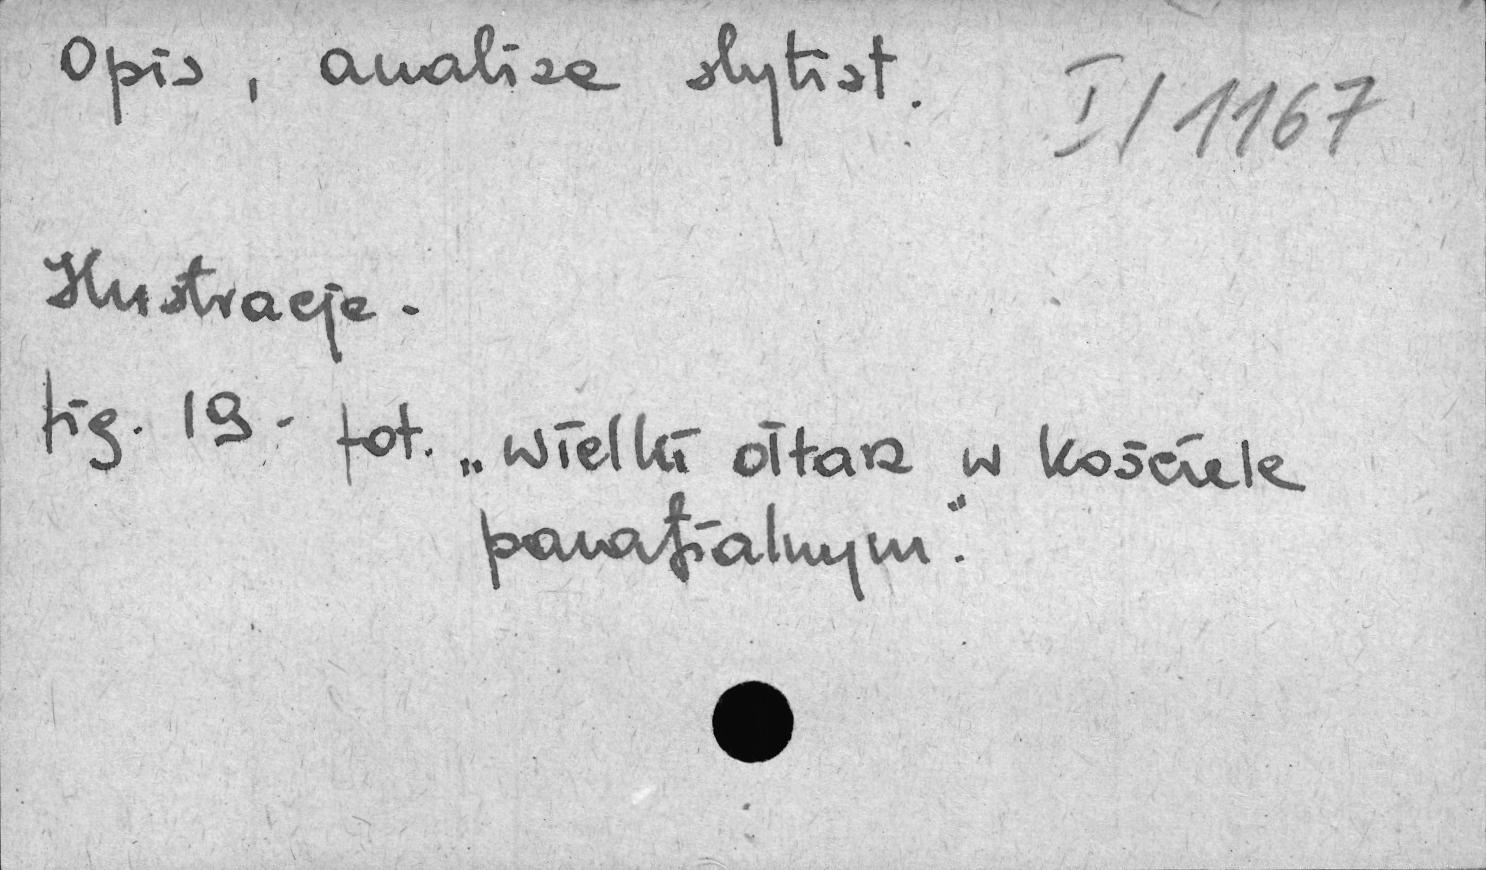 Opis, analiza stylist.
I/1167
Ilustracje.
fig. 19. fot. „Wielki ołtarz w kościele
parafialnym".